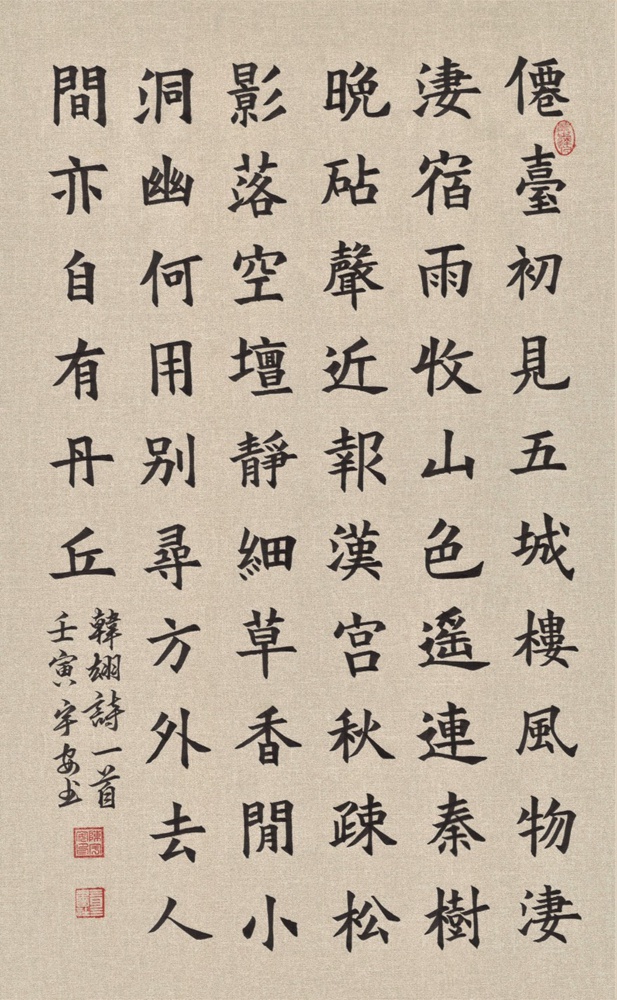 僊臺初見五城樓風物淒
淒宿雨收山色遙連秦樹
晩砧聲近報漢宮秋疎松
影落空壇靜細草香閒小
洞幽何用别尋方外去人
間亦自有丹丘
韓翃詩一首
壬寅宇安书